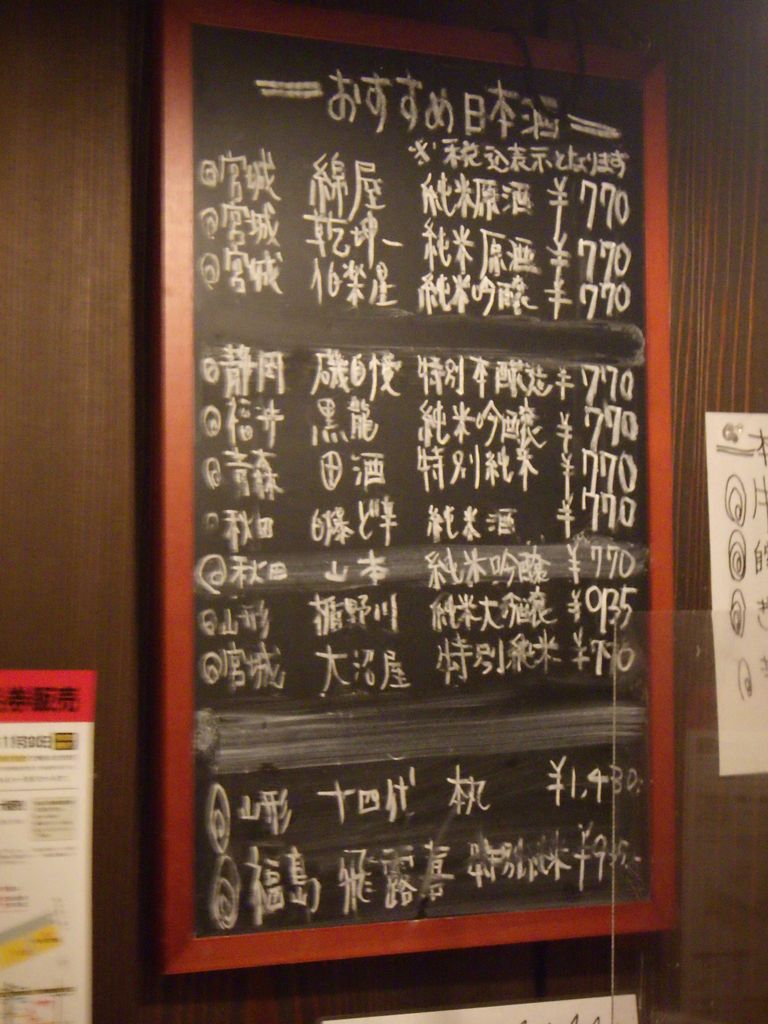 おすすめ日本酒
※税込表示となります
◎宮城 綿屋 純米原酒 ¥770
◎宮城 乾坤一 純米原酒 ¥770
◎宮城 伯楽星 純米吟醸 ¥770
◎静岡 磯自慢 特別本醸造 ¥770
◎福井 黒龍 純米吟醸 ¥770
◎青森 田酒 特別純米 ¥770
秋田 白爆ど辛 純米酒 ¥770
◎秋田 山本 純米吟醸 ¥770
◎山形 楯野川 純米大吟醸 ¥935
◎宮城 大沼屋 特別純米 ¥770
◎山形 十四代 ¥1,430-
◎福島 飛露喜 特別純米 ¥935-
券販売